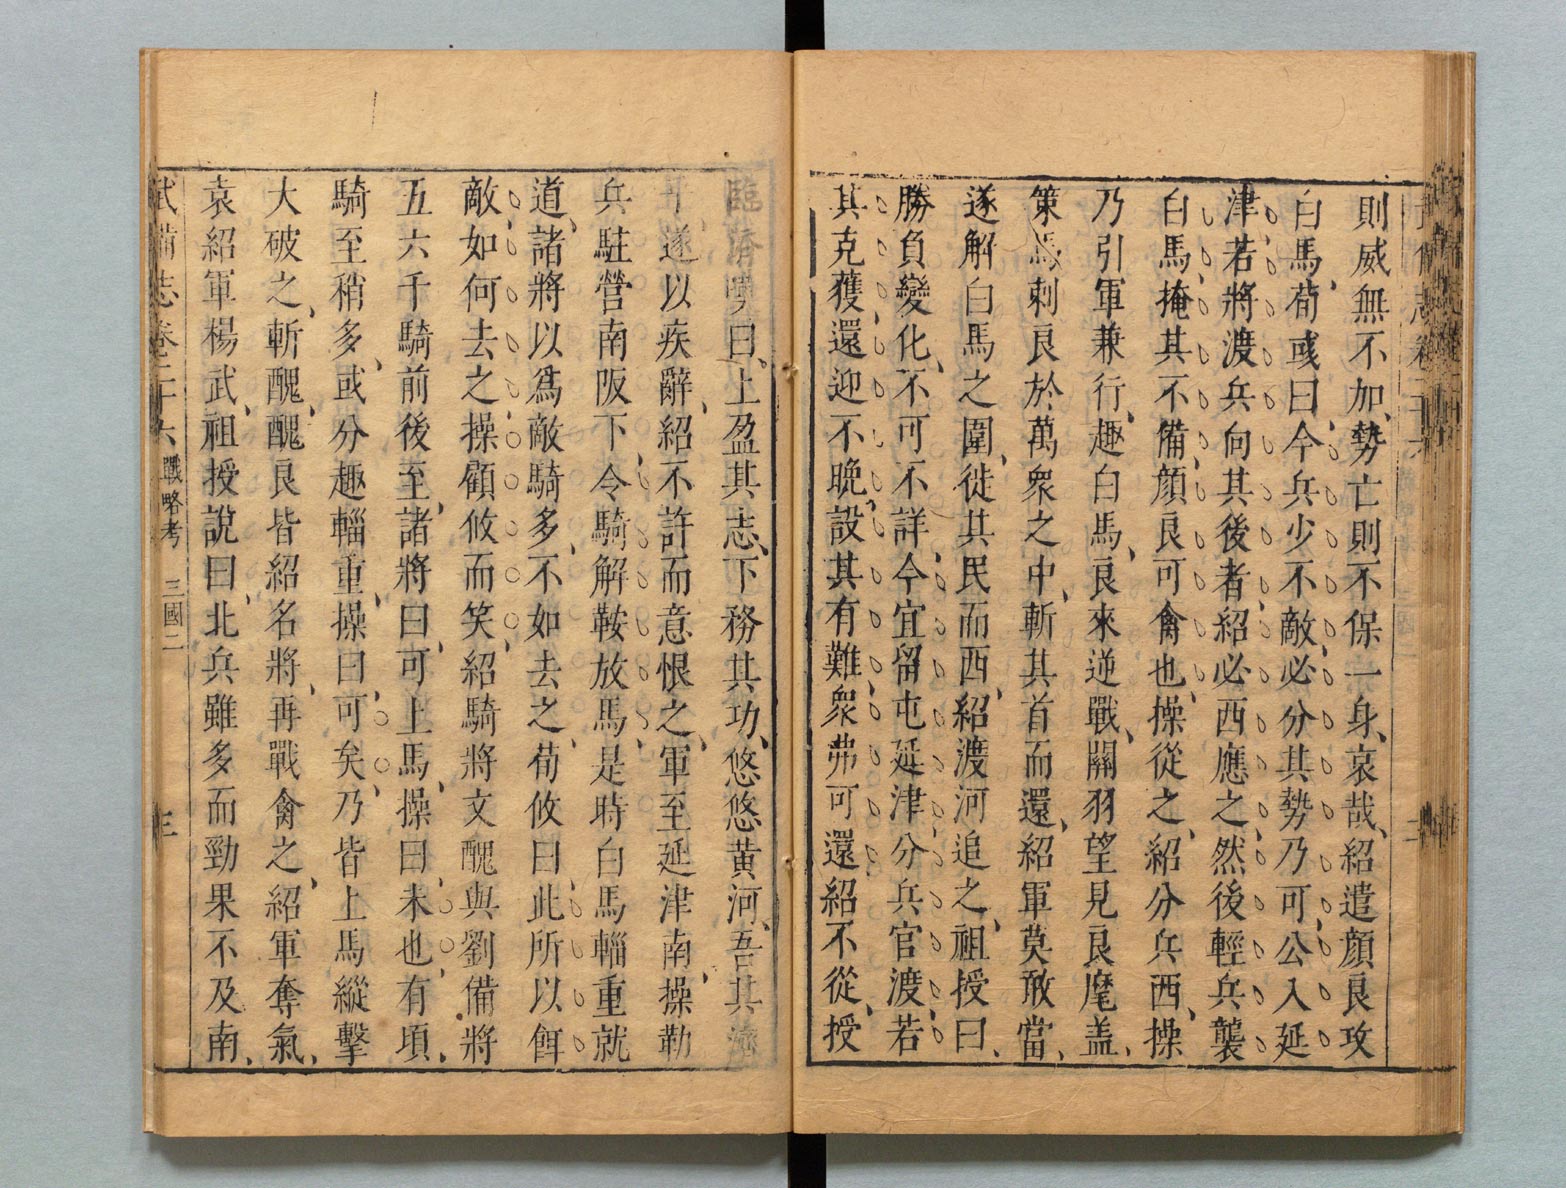 則威無不加、勢亡則不保一身、哀哉、紹遣顏良攻
白馬、荀彧曰、今兵少不敵、必分其勢乃可、公入延
津、若將渡兵向其後者、紹必西應之、然後輕兵襲
白馬、掩其不備、顏良可禽也、操從之、紹分兵西、操
乃引軍兼行、趣白馬、良來逆戰、關羽望見良麾盖、
策馬刺良於萬衆之中、斬其首而還、紹軍莫敢當、
遂解白馬之圍、徙其民而西、紹渡河追之、祖授曰、
勝負變化、不可不詳、今宜留屯延津分兵官渡、若
其克獲、還迎不晚、設其有難、衆弗可還、紹不從、授
臨濟嘆曰、上盈其志、下務其功、悠悠黃河、吾其濟
乎、遂以疾辭、紹不許而意恨之、軍至延津南、操勒
兵駐營南阪下、令騎解鞍放馬、是時白馬輜重就
道、諸將以爲敵騎多、不如去之、荀攸曰、此所以餌
敵、如何去之、操顧攸而笑、紹騎將文醜與劉備將
五六千騎前後至、諸將曰、可上馬、操曰、未也、有頃、
騎至稍多、或分趣輜重、操曰、可矣、乃皆上馬縱擊
大破之、斬醜、醜良皆紹名將、再戰禽之、紹軍奪氣、
袁紹軍楊武、祖授說曰、北兵雖多而勁果不及南、
武備志卷二十六 戰略考 三國二 三